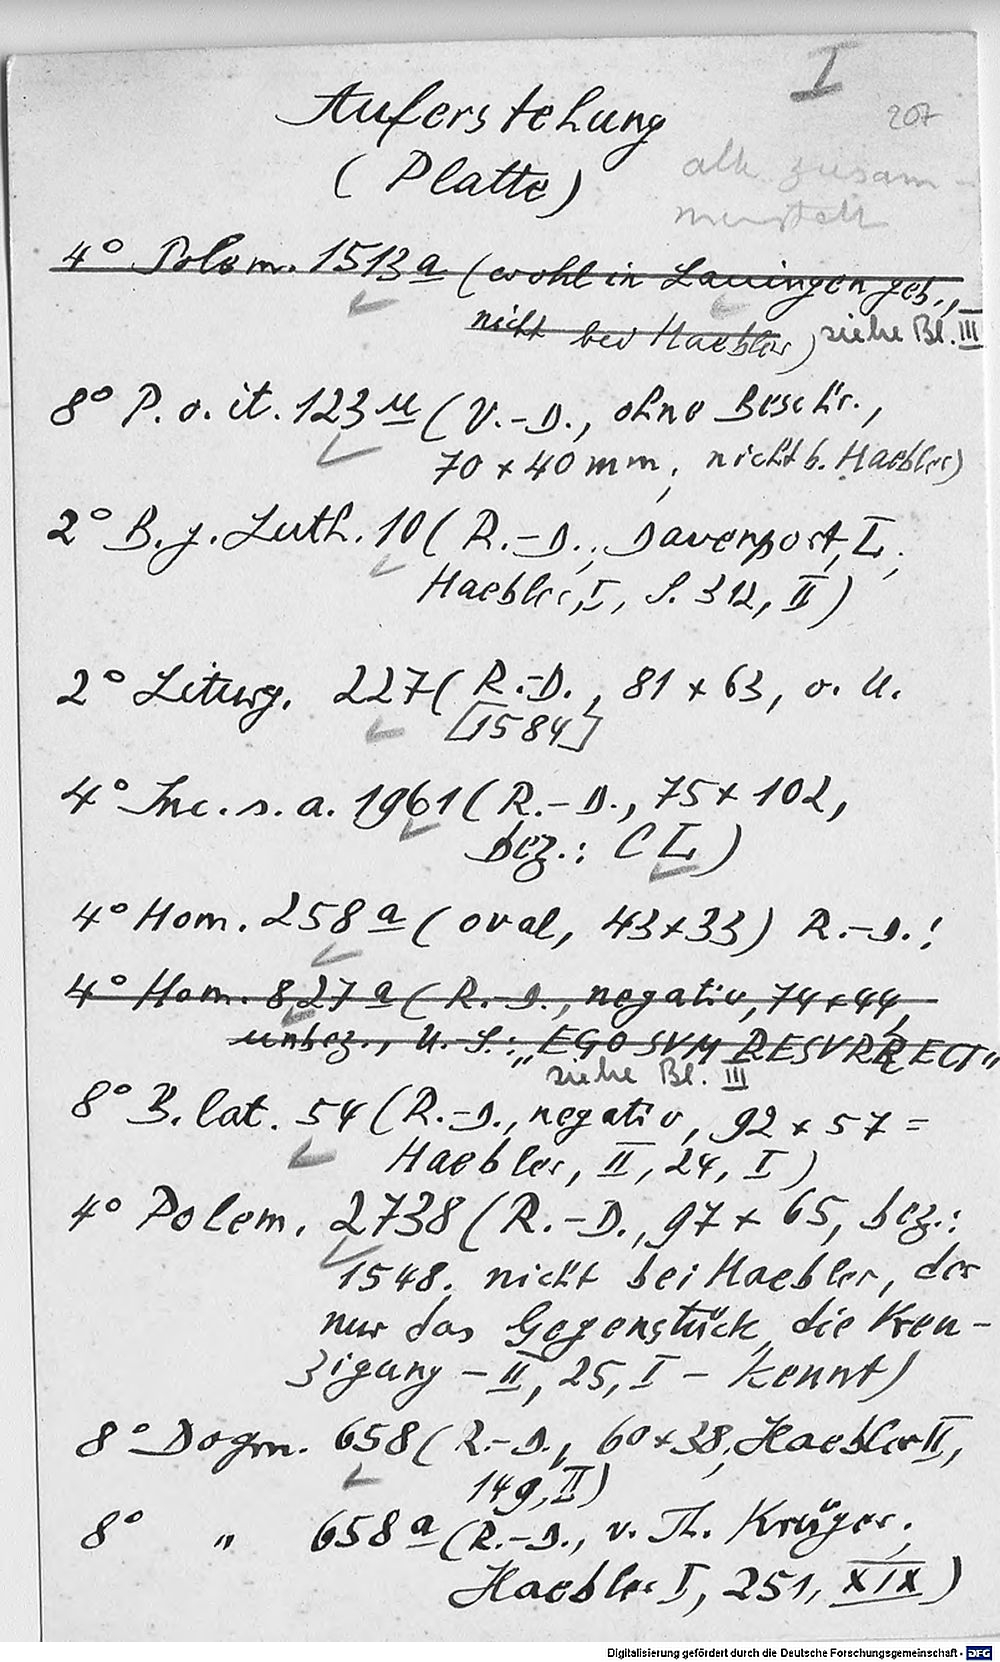 I
Auferstehung
207
(Platte)
4° Polem. 1513a (wohl in Lauingen geb.,
nicht bei Haebler) siehe Bl. III
8° P. o. it. 123 u (V.-D., ohne Beschr.,
70 x 40 mm, nicht b. Haebler)
2° B. g. Luth. 10 (R.-D., Davenport, L,
Haebler, I, S. 312, II)
2° Liturg. 227 (R.-D., 81 x 63, o. U.
[1584]
4° Inc. s. a. 1961 (R.-D., 75 x 102,
bez.: C L)
4° Hom. 258 a (oval, 43 x 33) R.-D.!
4° Hom. 827 a (R.-D., negativ, 74 x 44,
unbez., U. S.: „EGO SVM RESVRRECT"
siehe Bl. III
8° B. lat. 54 (R.-D., negativ, 92 x 57 =
Haebler, II, 24, I)
4° Polem. 2738 (R.-D., 97 x 65, bez.:
1548, nicht bei Haebler, der
nur das Gegenstück, die Kreu-
zigung - II, 25, I - kennt)
8° Dogm. 658 (R.-D., 60 x 38, Haebler II,
149, II)
8° " 658 a (R.-D., v. Th. Krüger,
Haebler I, 251, XIX)
Digitalisierung gefördert durch die Deutsche Forschungsgemeinschaft - DFG